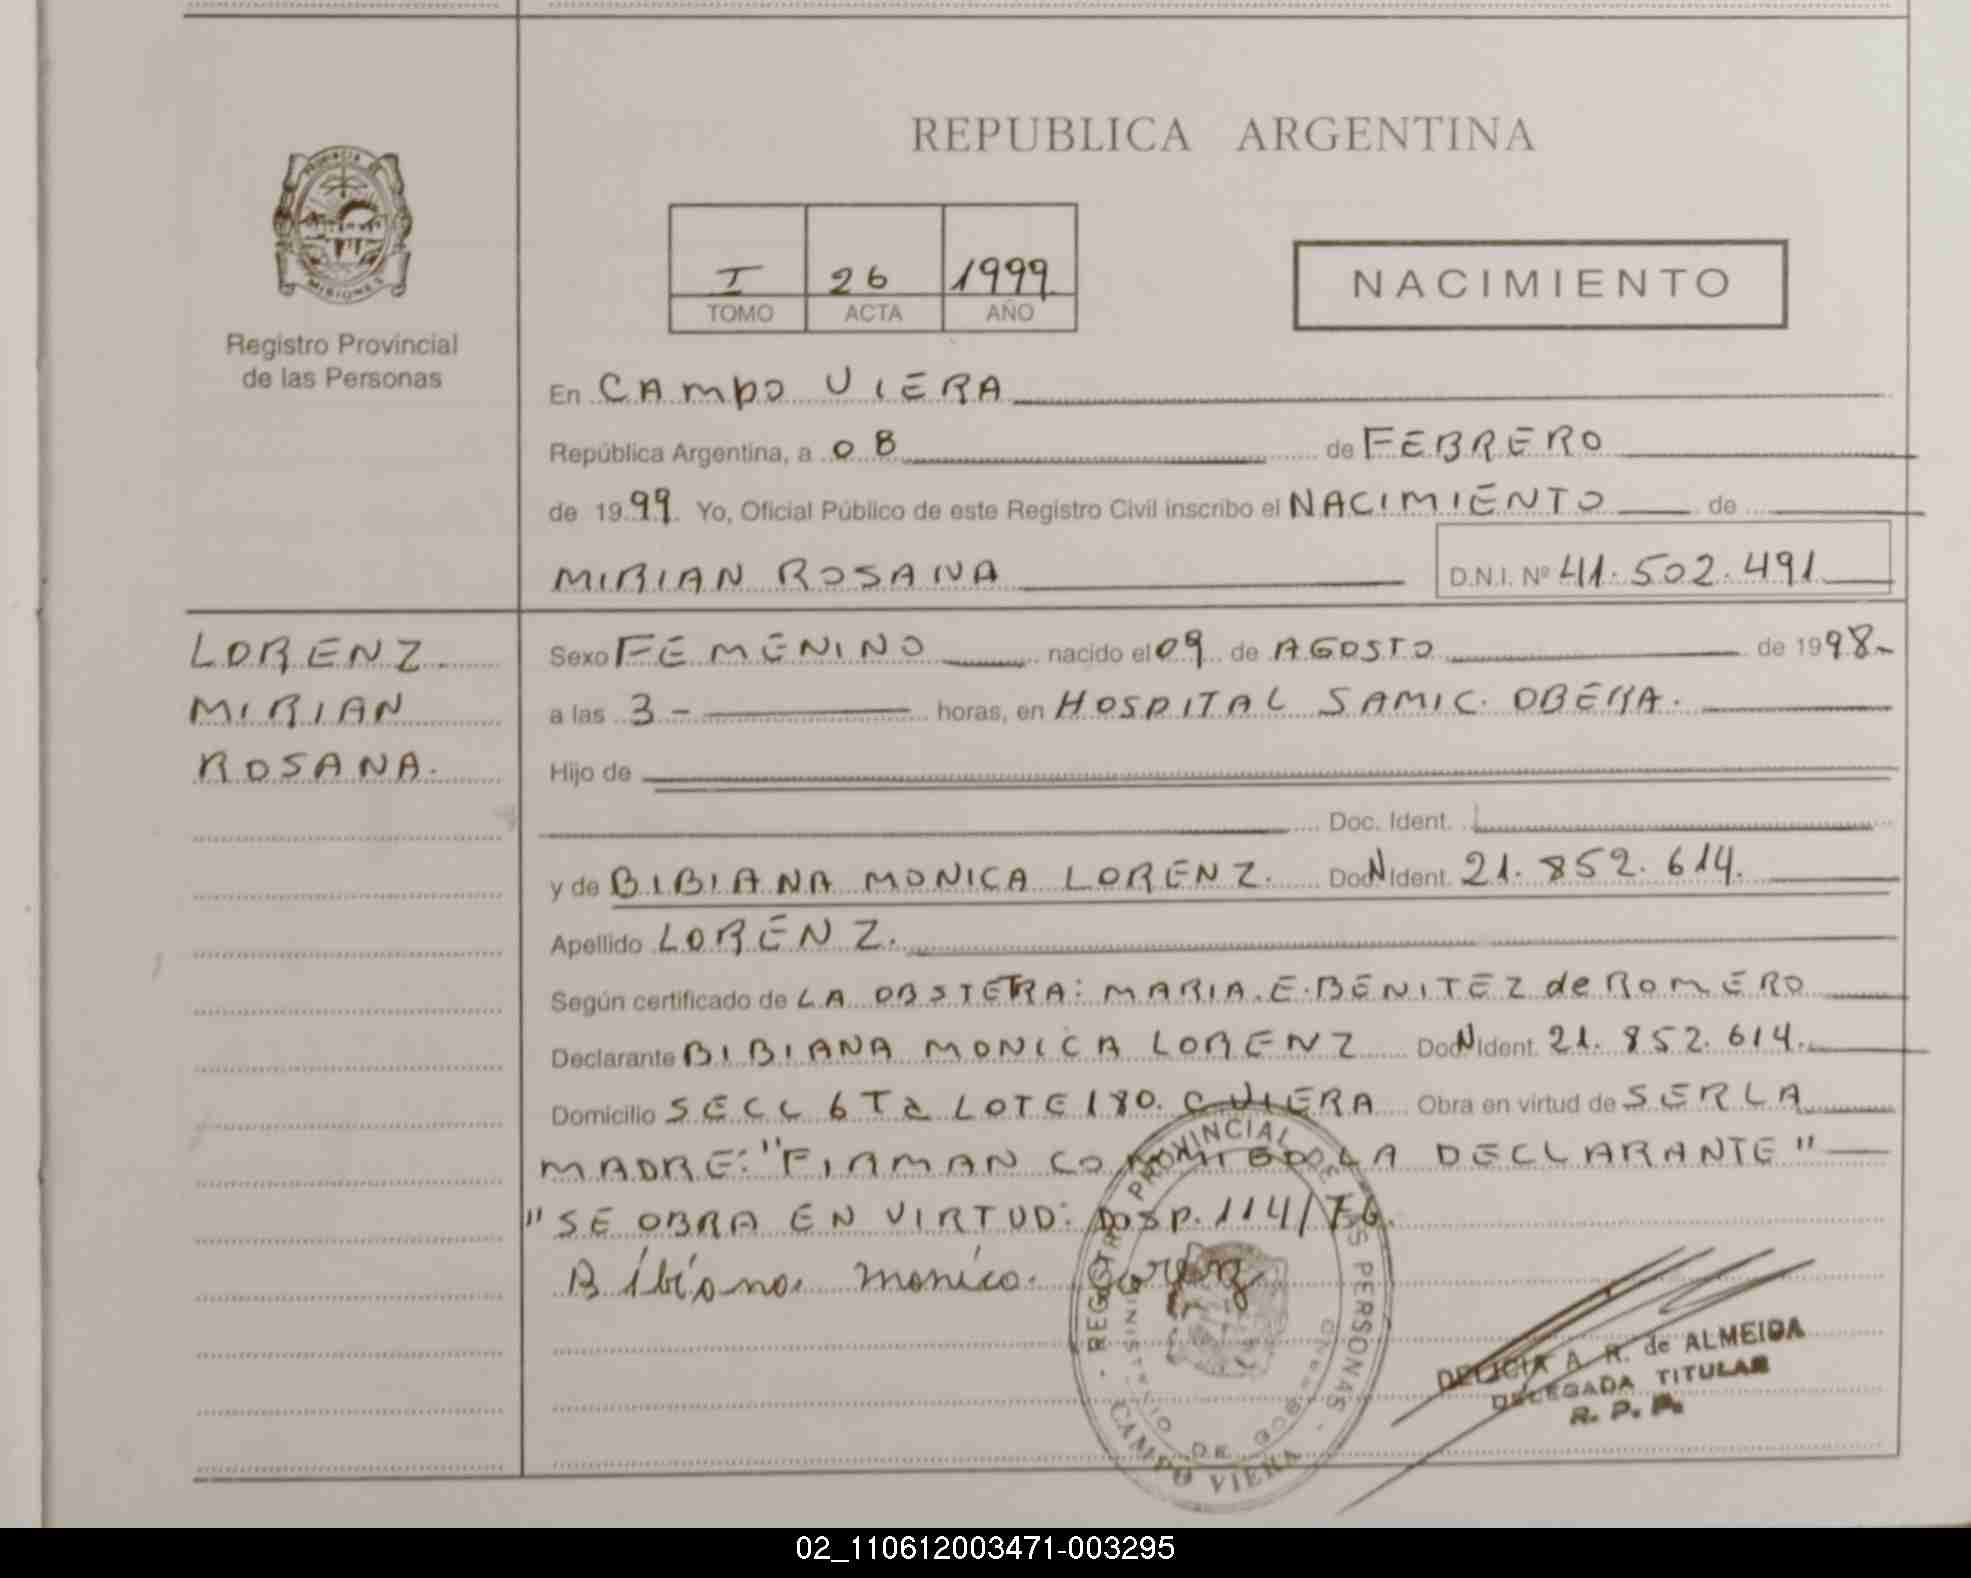 REPUBLICA ARGENTINA
PROVINCIA DE MISIONES
Registro Provincial
de las Personas
I 26 1999
TOMO ACTA AÑO
NACIMIENTO
En CAMPO VIERA
República Argentina, a 08 de FEBRERO
de 1999 Yo, Oficial Público de este Registro Civil inscribo el NACIMIENTO de
MIRIAN ROSANA D.N.I. Nº 41.502.491
LORENZ.
MIRIAN
ROSANA.
Sexo FEMENINO nacido el 09 de AGOSTO de 1998-
a las 3- horas, en HOSPITAL SAMIC. OBERA.
Hijo de
Doc. Ident.
y de BIBIANA MONICA LORENZ. Doc N Ident. 21.852.614.
Apellido LORENZ.
Según certificado de LA OBSTETRA: MARIA.E.BENITEZ de ROMERO
Declarante BIBIANA MONICA LORENZ Doc N Ident. 21.852.614.
Domicilio SECC 6Ta LOTE 180. C VIERA Obra en virtud de SER LA
MADRE: "FIRMAN CONMIGO LA DECLARANTE"
"SE OBRA EN VIRTUD: DISP. 114/76.
Bibiana Monica Lorenz
REGISTRO PROVINCIAL DE LAS PERSONAS
MINISTERIO DE GOBIERNO
CAMPO VIERA
DELICIA A. R. de ALMEIDA
DELEGADA TITULAR
R. P. P.
02_110612003471-003295